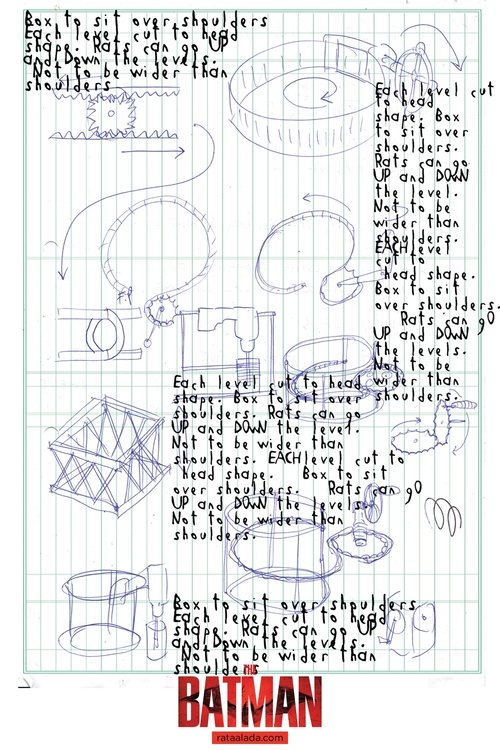 Box to sit over shoulders
Each level cut to head
shape. Rats can go UP
and Down the levels.
Not to be wider than
shoulders
Each level cut
to head
shape. Box
to sit over
shoulders.
Rats can go
UP and DOWN
the level.
Not to be
wider than
shoulders.
EACH level
cut to
head shape.
Box to sit
over shoulders.
Rats can gO
UP and DOWN
the levels.
Not to be
wider than
shoulders.
Each level cut to head
shape. Box to sit over
shoulders. Rats can go
UP and DOWN the level.
Not to be wider than
shoulders. EACH level cut to
head shape. Box to sit
over shoulders. Rats can gO
UP and DOWN the levels.
Not to be wider than
shoulders.
Box to sit over shoulders
Each level cut to head
shape. Rats can go UP
and Down the levels.
Not to be wider than
shoulders
THE
BATMAN
rataalada.com